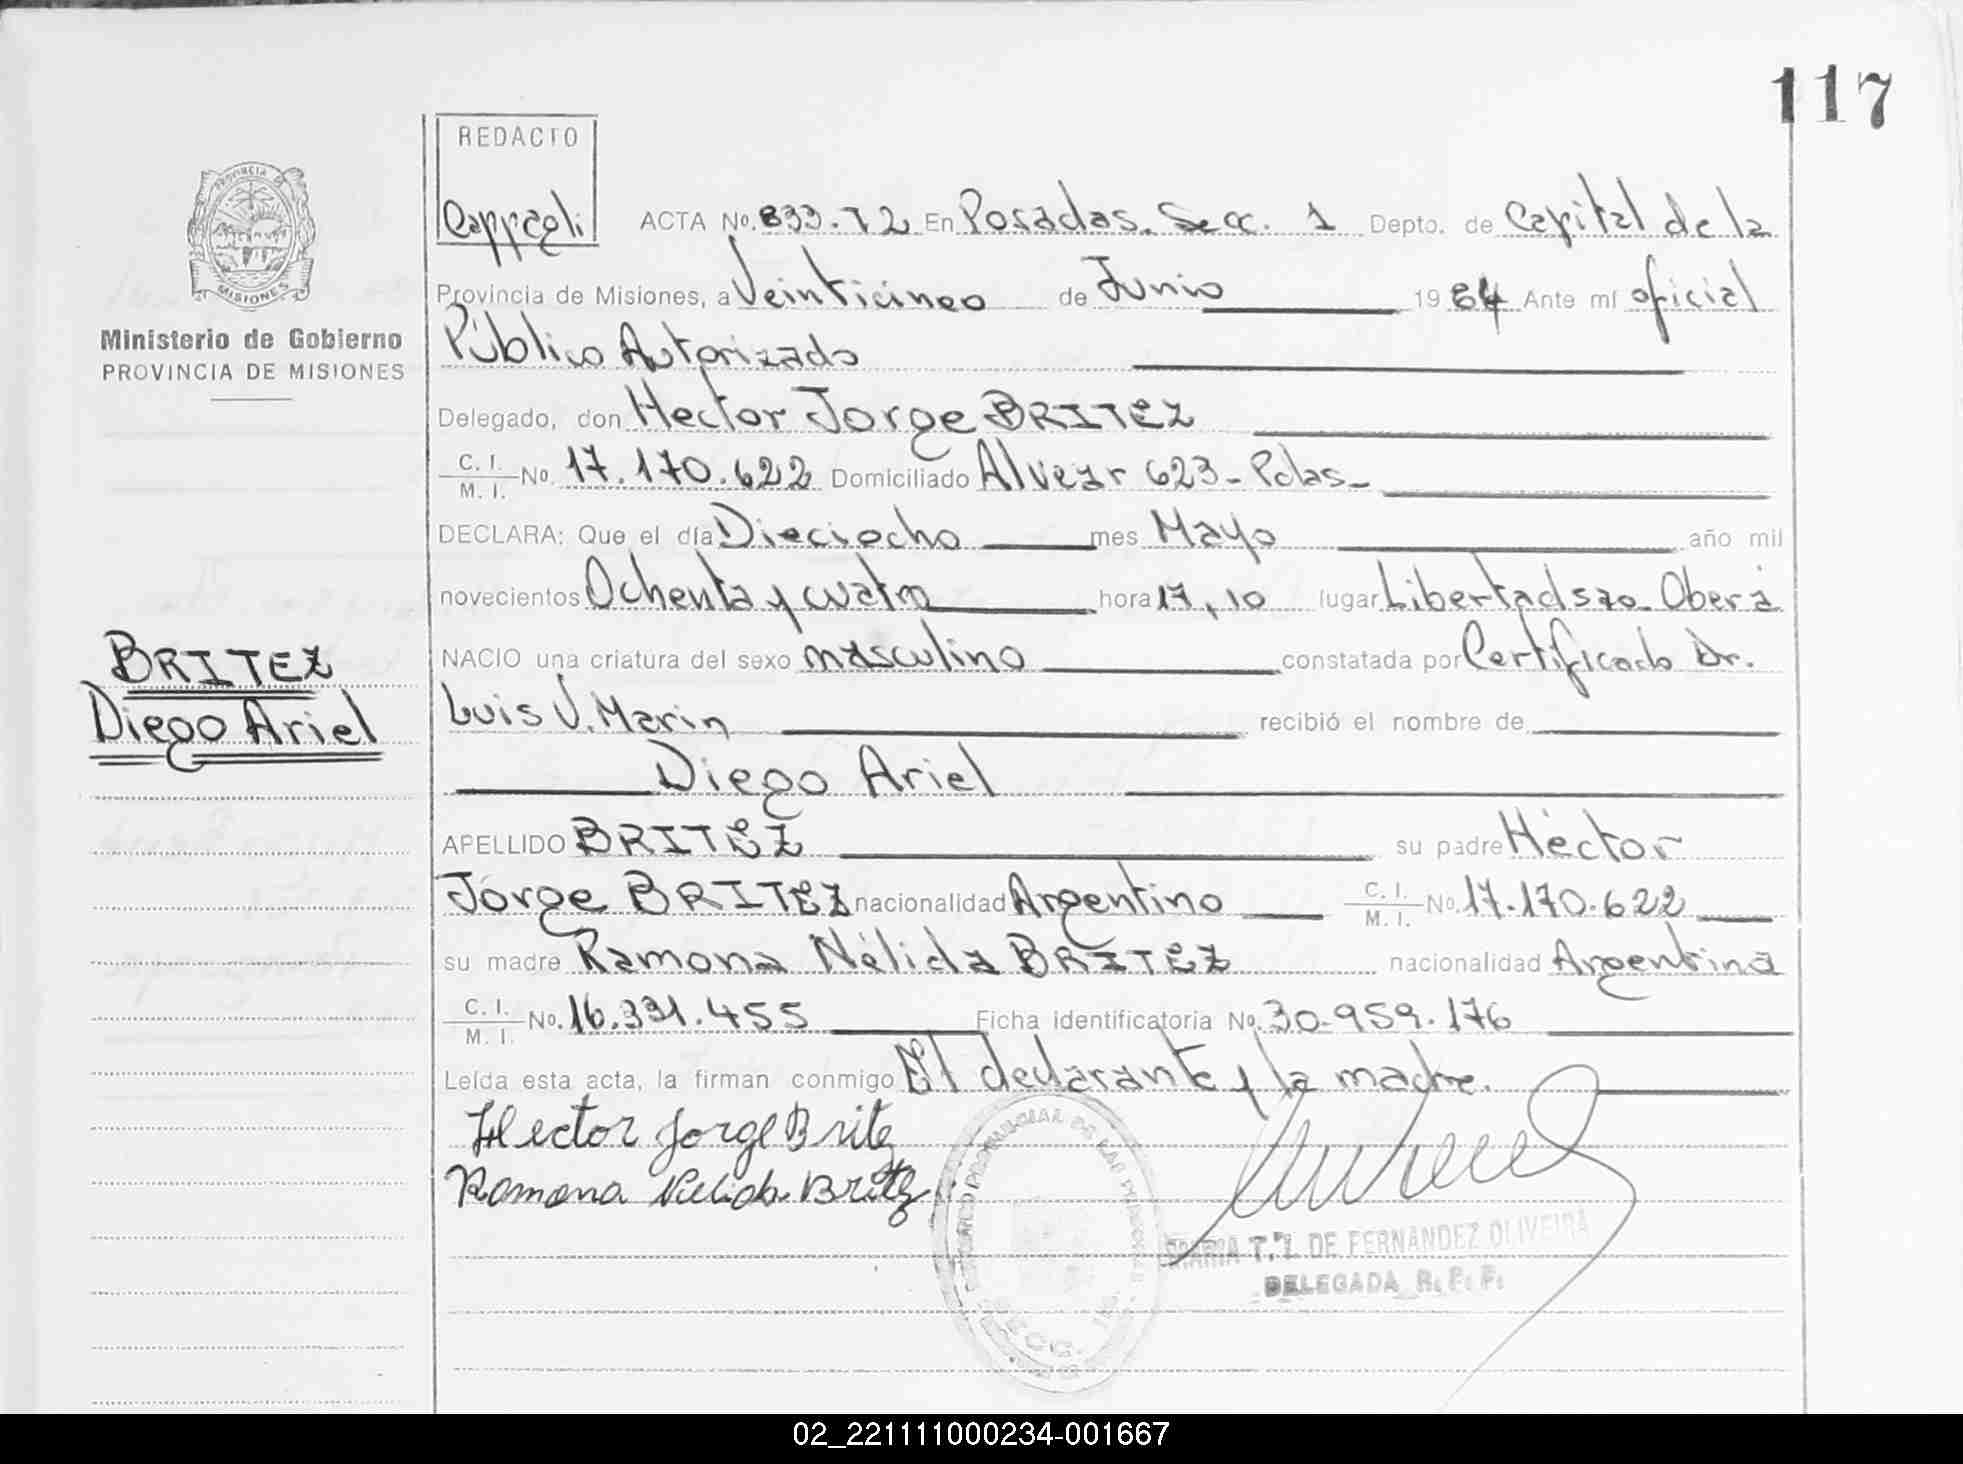 117
REDACTO
Cappagli
ACTA No. 833.T2 En Posadas. Secc. 1 Depto. de Capital de la
Provincia de Misiones, a Veinticinco de Junio 1984 Ante mí oficial
Público Autorizado
Delegado, don Hector Jorge BRITEZ
C. I. / M. I. No. 17.170.622 Domiciliado Alvear 623 - Pdas_
DECLARA: Que el día Dieciocho mes Mayo año mil
novecientos Ochenta y cuatro hora 17,10 lugar Libertad 520. Oberá
NACIO una criatura del sexo masculino constatada por Certificado Dr.
Luis V. Marin recibió el nombre de
Diego Ariel
APELLIDO BRITEZ su padre Héctor
Jorge BRITEZ nacionalidad Argentino C. I. / M. I. No. 17.170.622
su madre Ramona Nélida BRITEZ nacionalidad Argentina
C. I. / M. I. No. 16.331.455 Ficha identificatoria No. 30.959.176
Leída esta acta, la firman conmigo El declarante y la madre.
Hector Jorge Britez
Ramona Nelida Britez
MARIA T. DE FERNANDEZ OLIVEIRA
DELEGADA R. P. P.
Ministerio de Gobierno
PROVINCIA DE MISIONES
BRITEZ
Diego Ariel
PROVINCIA DE
MISIONES
REGISTRO PROVINCIAL DE LAS PERSONAS
SECC.
02_221111000234-001667